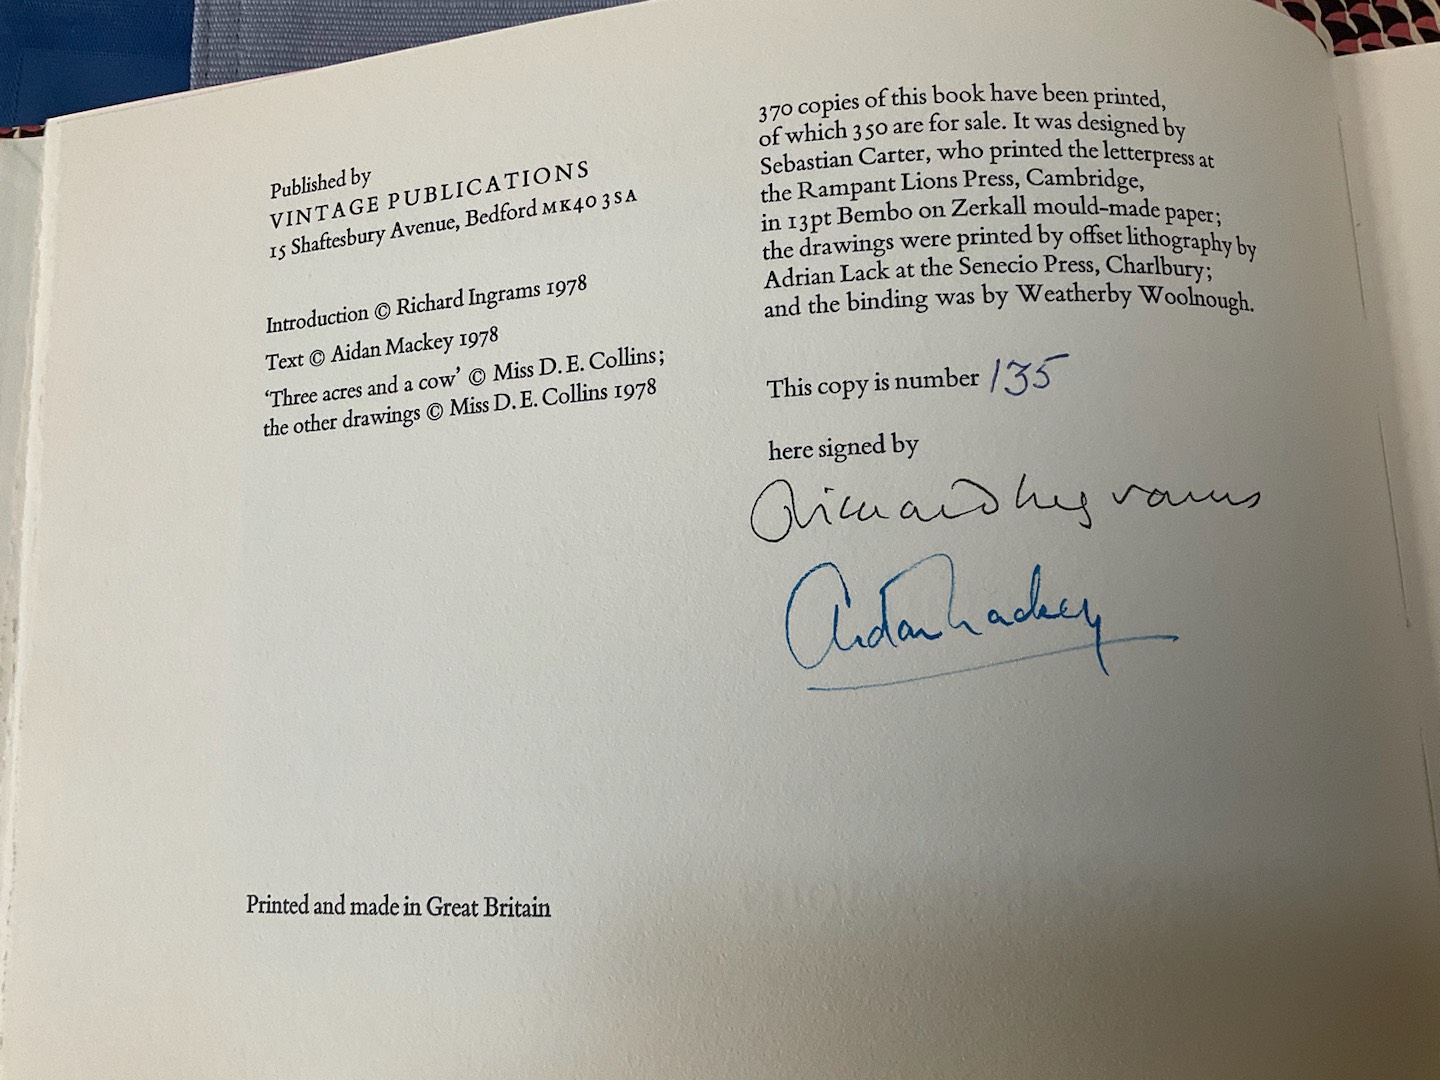 Published by
VINTAGE PUBLICATIONS
15 Shaftesbury Avenue, Bedford MK40 3SA
Introduction © Richard Ingrams 1978
Text © Aidan Mackey 1978
‘Three acres and a cow’ © Miss D. E. Collins;
the other drawings © Miss D. E. Collins 1978
Printed and made in Great Britain
370 copies of this book have been printed,
of which 350 are for sale. It was designed by
Sebastian Carter, who printed the letterpress at
the Rampant Lions Press, Cambridge,
in 13pt Bembo on Zerkall mould-made paper;
the drawings were printed by offset lithography by
Adrian Lack at the Senecio Press, Charlbury;
and the binding was by Weatherby Woolnough.
This copy is number 135
here signed by
Richard Ingrams
Aidan Mackey